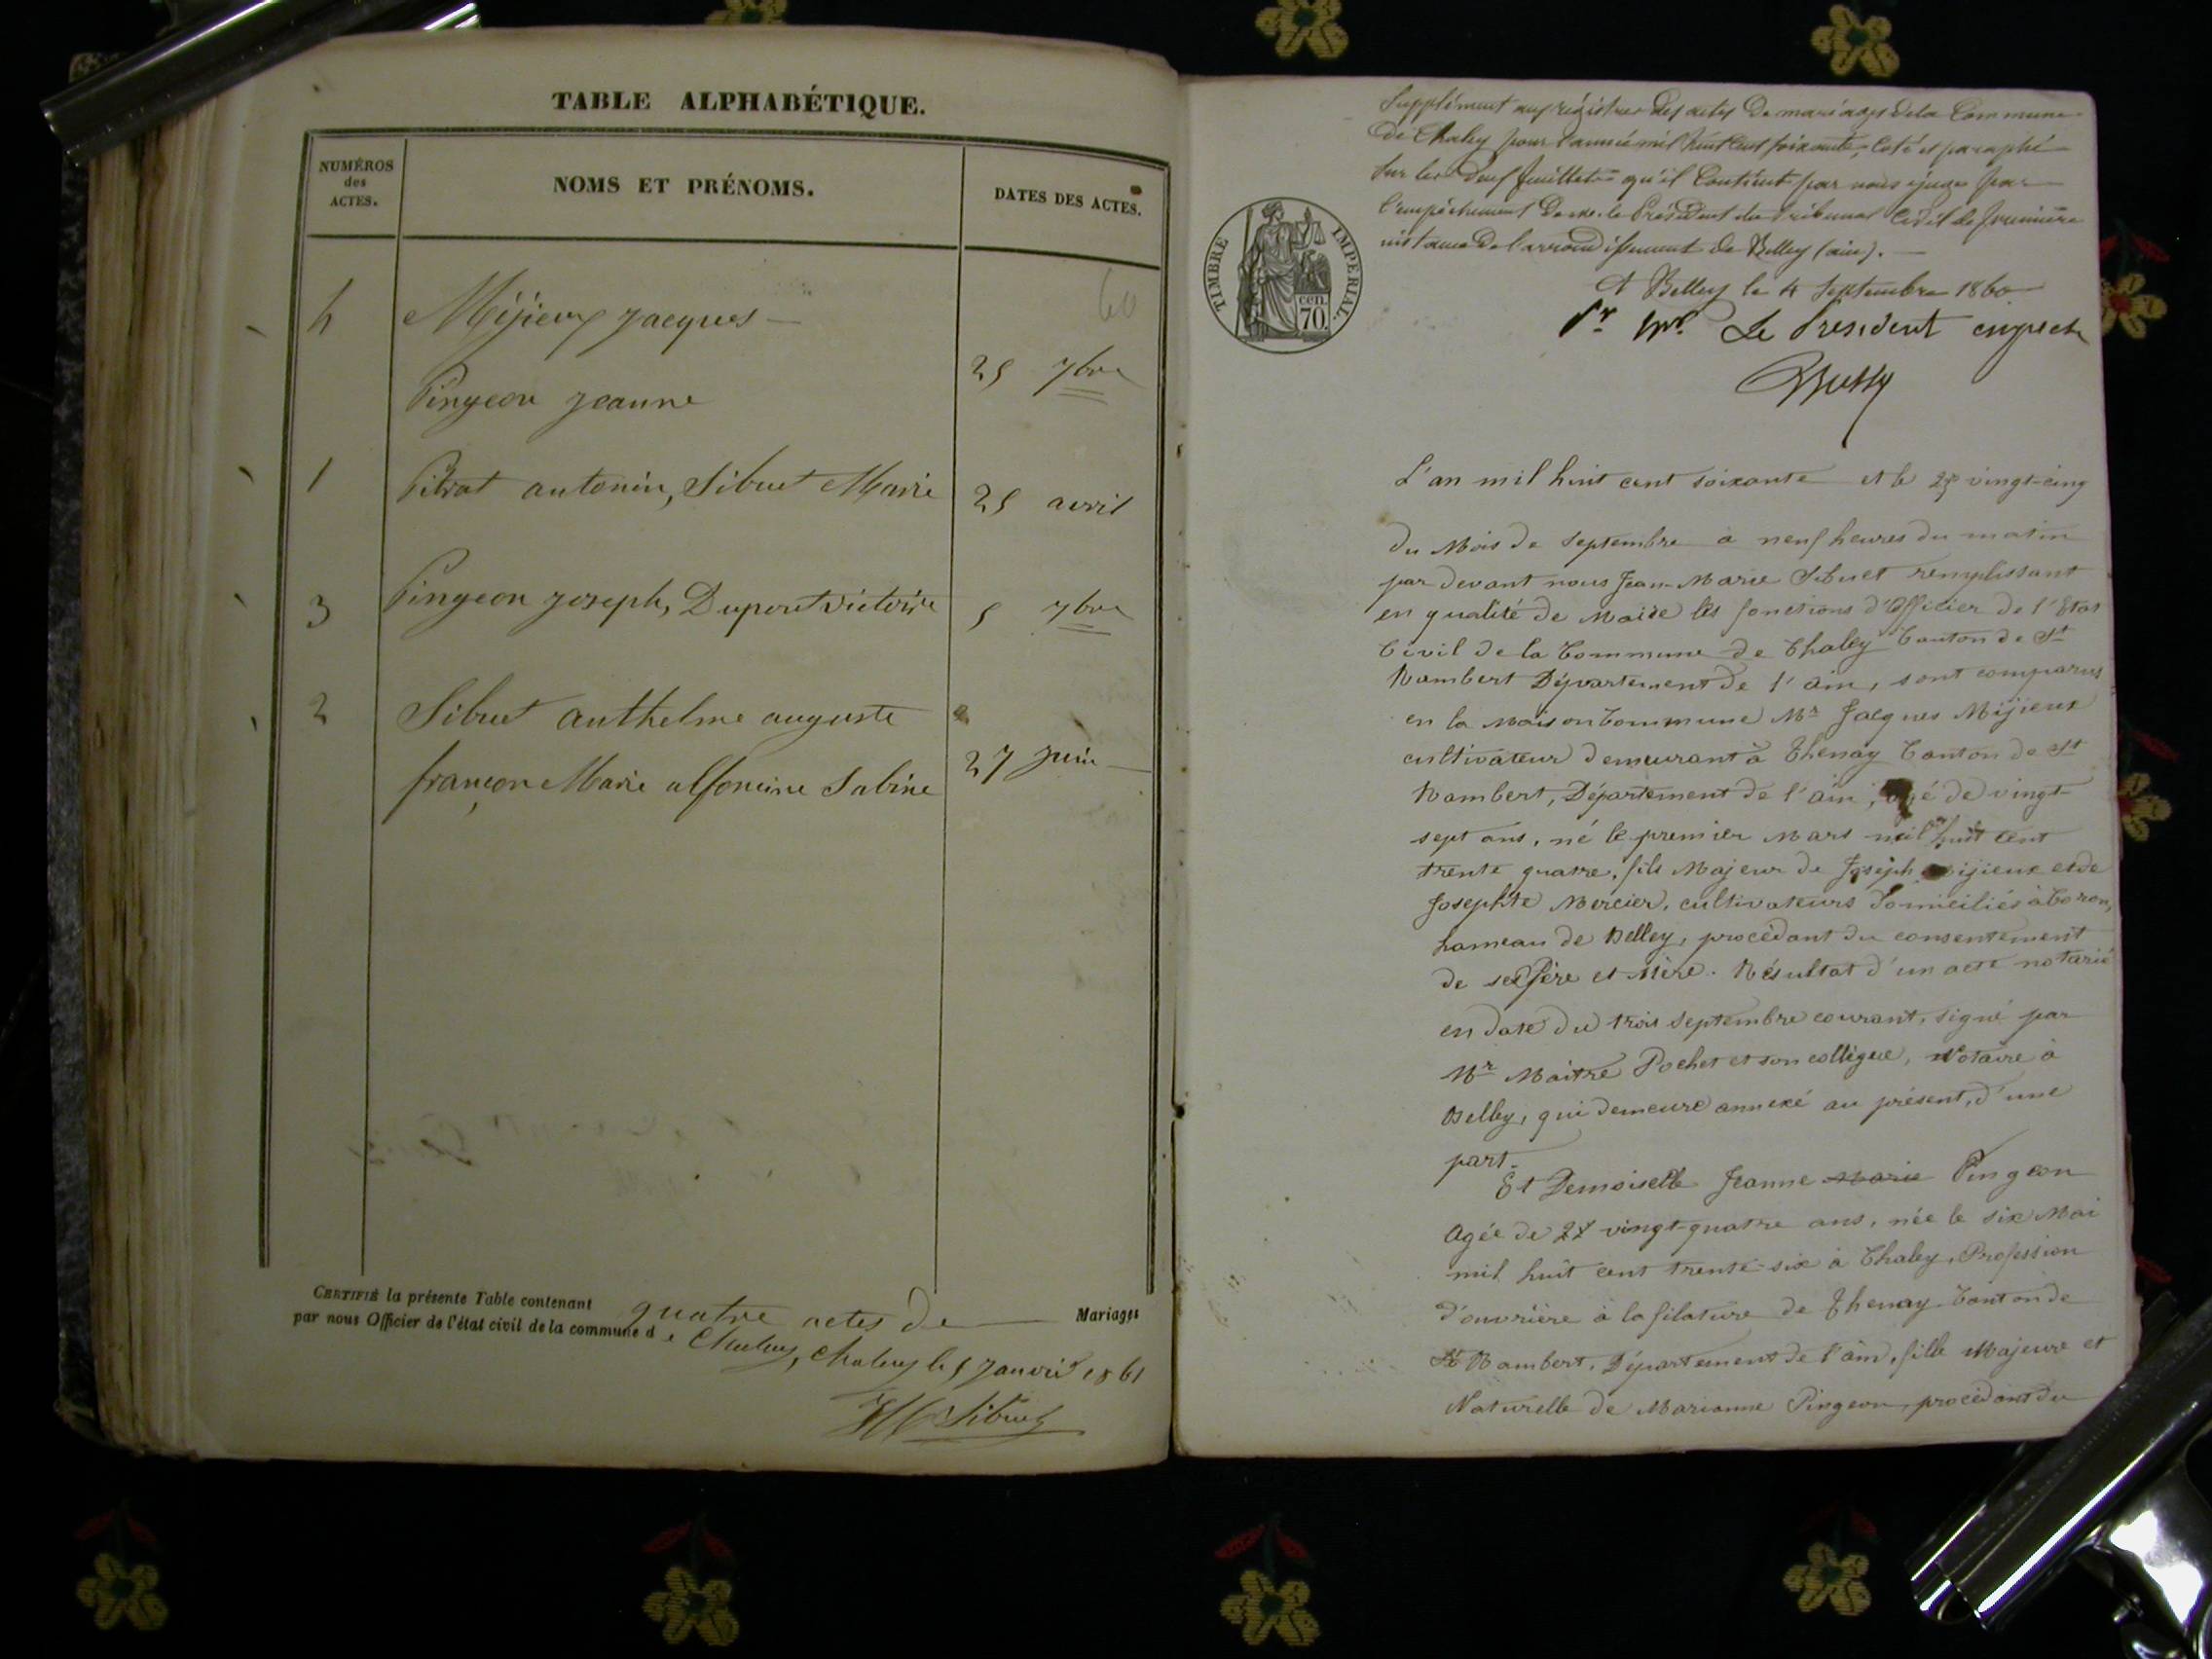 TABLE ALPHABÉTIQUE.
NUMÉROS
des
ACTES.
NOMS ET PRÉNOMS.
DATES DES ACTES.
60
4 Mijieux Jacques
Pingeon Jeanne
25 7bre
1 Pitrat antonin, Sibuet Marie 25 avril
3 Pingeon Joseph, Dupont Victoire 5 7bre
2 Sibuet anthelme auguste
françon Marie alfonsine Sabine
27 Juin
CERTIFIÉ la présente Table contenant quatre actes de Mariages
par nous Officier de l'état civil de la commune de Chaley, Chaley le 5 Janvier 1861
Sibuet
Supplément aux régistres des actes de mariages de la Commune
de Chaley pour l'année mil huit cent soixante, Coté et paraphé
sur les deux feuillets qu'il Contient par nous juge par
l'empêchement de Mr. le Président du Tribunal Civil de première
instance de l'arrondissement de Belley (ain).
A Belley le 4 Septembre 1860
Pr Mr. Le President empech
TIMBRE IMPERIAL
cen.
70.
L'an mil huit cent soixante et le 25 vingt-cinq
du Mois de Septembre à neuf heures du matin
par devant nous Jean-Marie Sibuet remplissant
en qualité de Maire les fonctions d'Officier de l'Etat
Civil de la Commune de Chaley Canton de St
Rambert Département de l'ain, sont comparus
en la Maison Commune Mr Jacques Mijieux
cultivateur demeurant à Thenay Canton de St
Rambert, Département de l'ain, agé de vingt-
sept ans, né le premier Mars mil huit cent
trente quatre, fils Majeur de Joseph Mijieux et de
Josephte Mercier, cultivateurs domiciliés à Coron,
hameau de Belley, procédant du consentement
de ses Père et Mère. Résultat d'un acte notarié
en date du trois Septembre courant, signé par
Mr Maitre Pochet et son collègue, Notaire à
Belley, qui demeure annexé au présent, d'une
part.
Et Demoiselle Jeanne Marie Pingeon
Agée de 24 vingt-quatre ans, née le six Mai
mil huit cent trente-six à Chaley, Profession
d'ouvrière à la filature de Thenay Canton de
St Rambert, Département de l'ain, fille Majeure et
Naturelle de Marianne Pingeon, procédant du